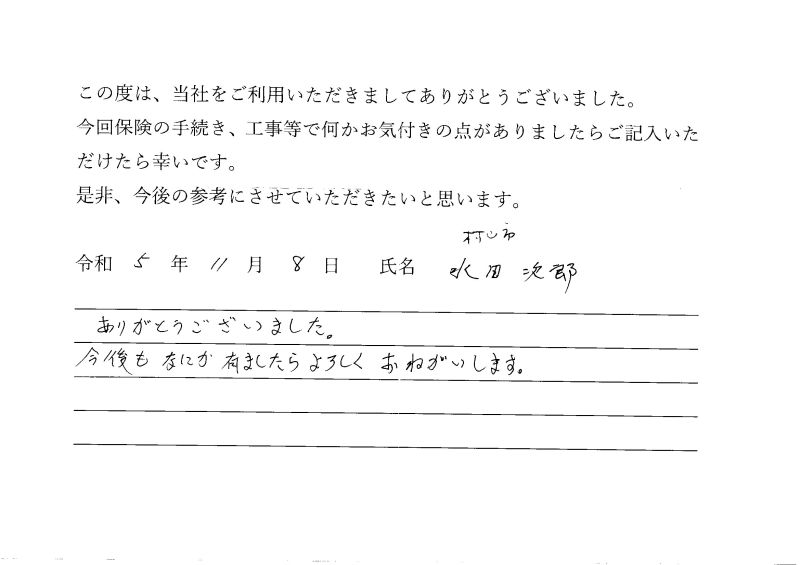 この度は、当社をご利用いただきましてありがとうございました。
今回保険の手続き、工事等で何かお気付きの点がありましたらご記入いた
だけたら幸いです。
是非、今後の参考にさせていただきたいと思います。
村山市
令和 5 年 11 月 8 日 氏名 水田 次郎
ありがとうございました。
今後も なにか 有ましたらよろしく おねがいします。